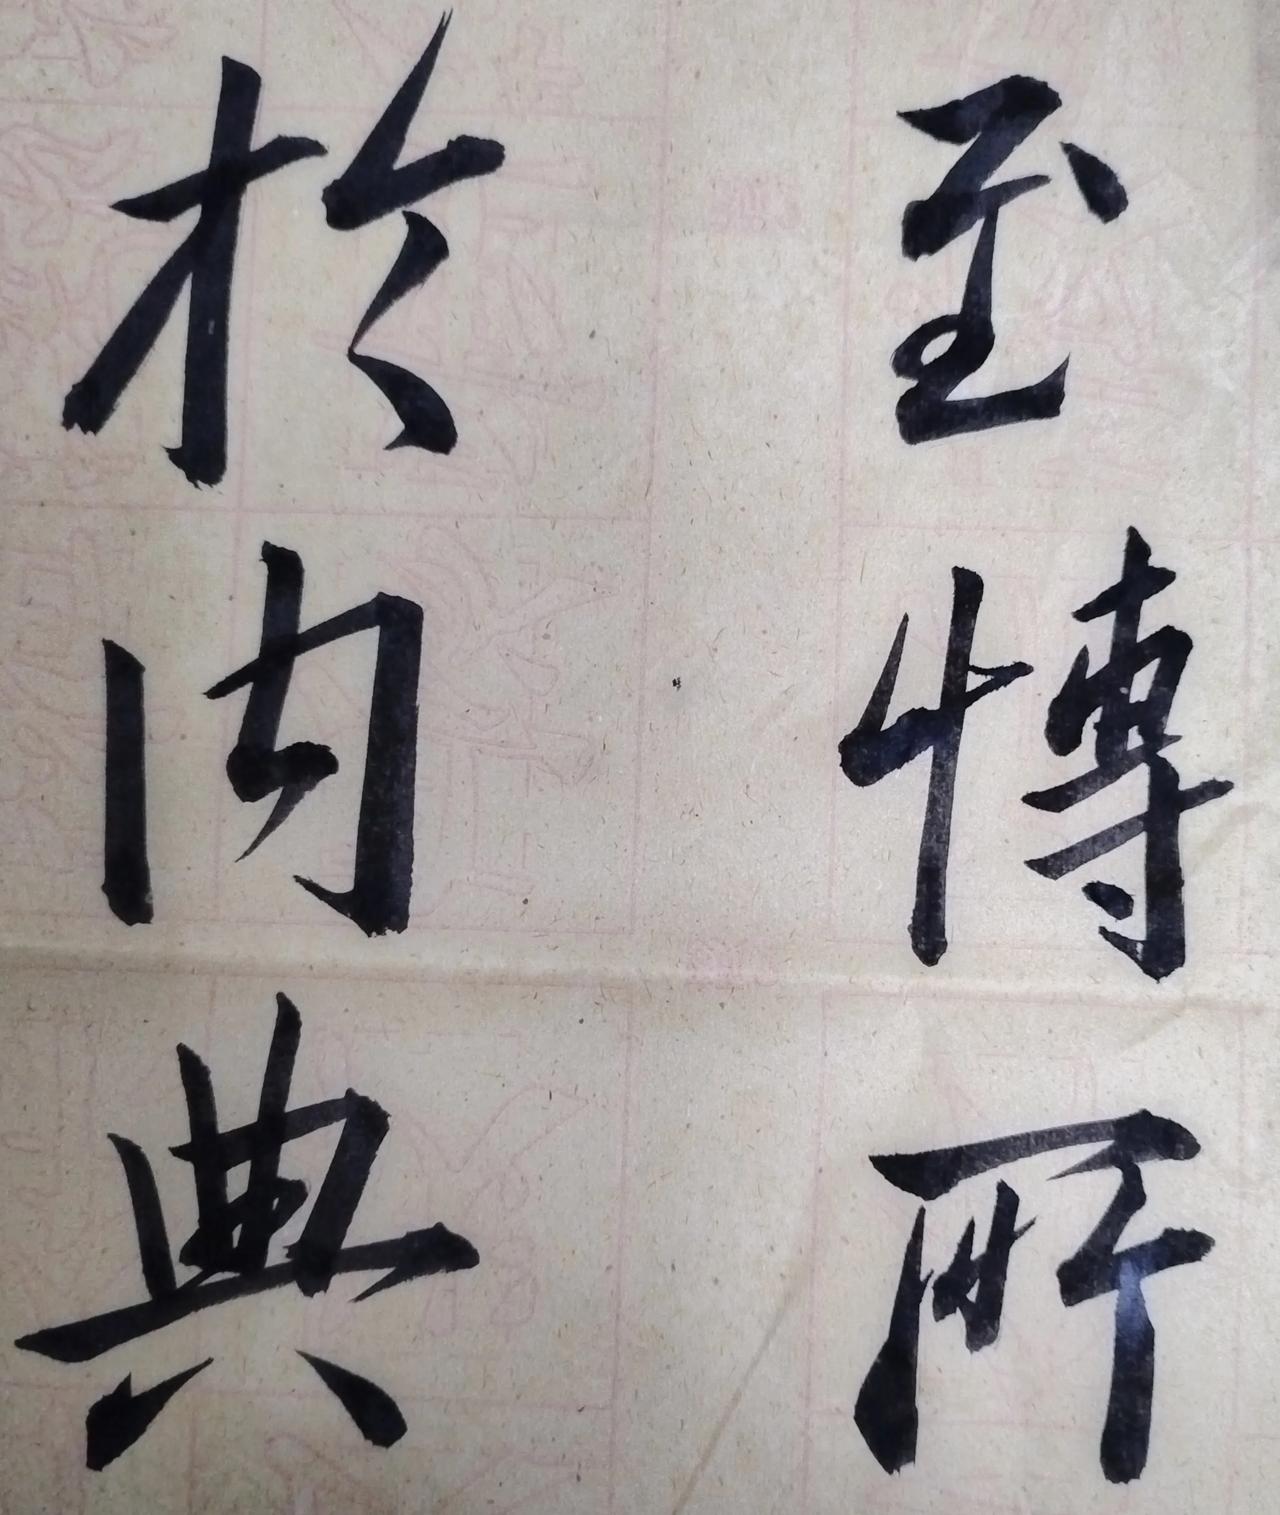 至愽所
於内典